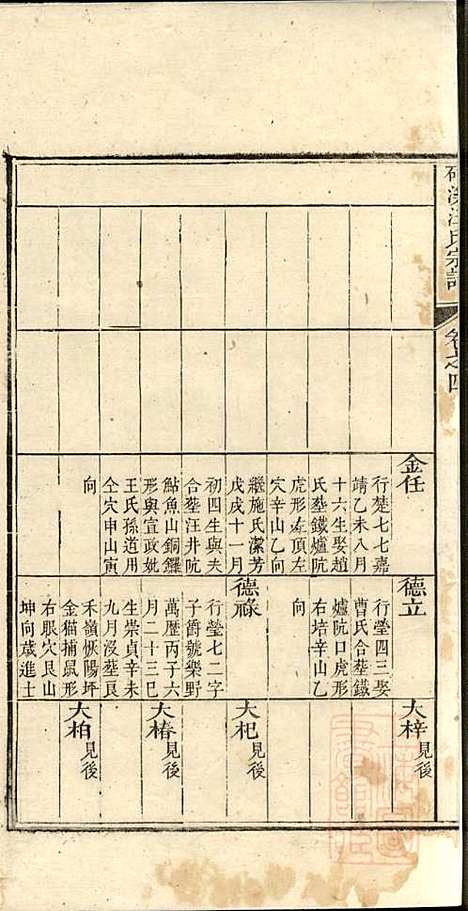 溪汪氏宗譜
卷之四
金任
行楚七七嘉
靖乙未八月
十六生娶趙
氏塟鐵爐阬
虎形左頂左
穴辛山乙向
繼施氏潔芳
戊戌十一月
初四生與夫
合塟汪井阬
鮎魚山銅鑼
形與宣政妣
王氏孫道用
仝穴申山寅
向
德立
行瑩四三娶
曹氏合塟鐵
爐阬口虎形
右培辛山乙
向
德祿
行瑩七二字
子爵號樂野
萬歷丙子六
月二十三巳
生崇貞辛未
九月沒塟艮
禾嶺恢陽坪
金猫捕鼠形
右眼穴艮山
坤向歲進士
大梓見後
大杞見後
大椿見後
大柏見後